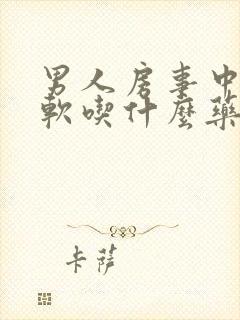 男人房事中
軟喫什麼藥
卡薩